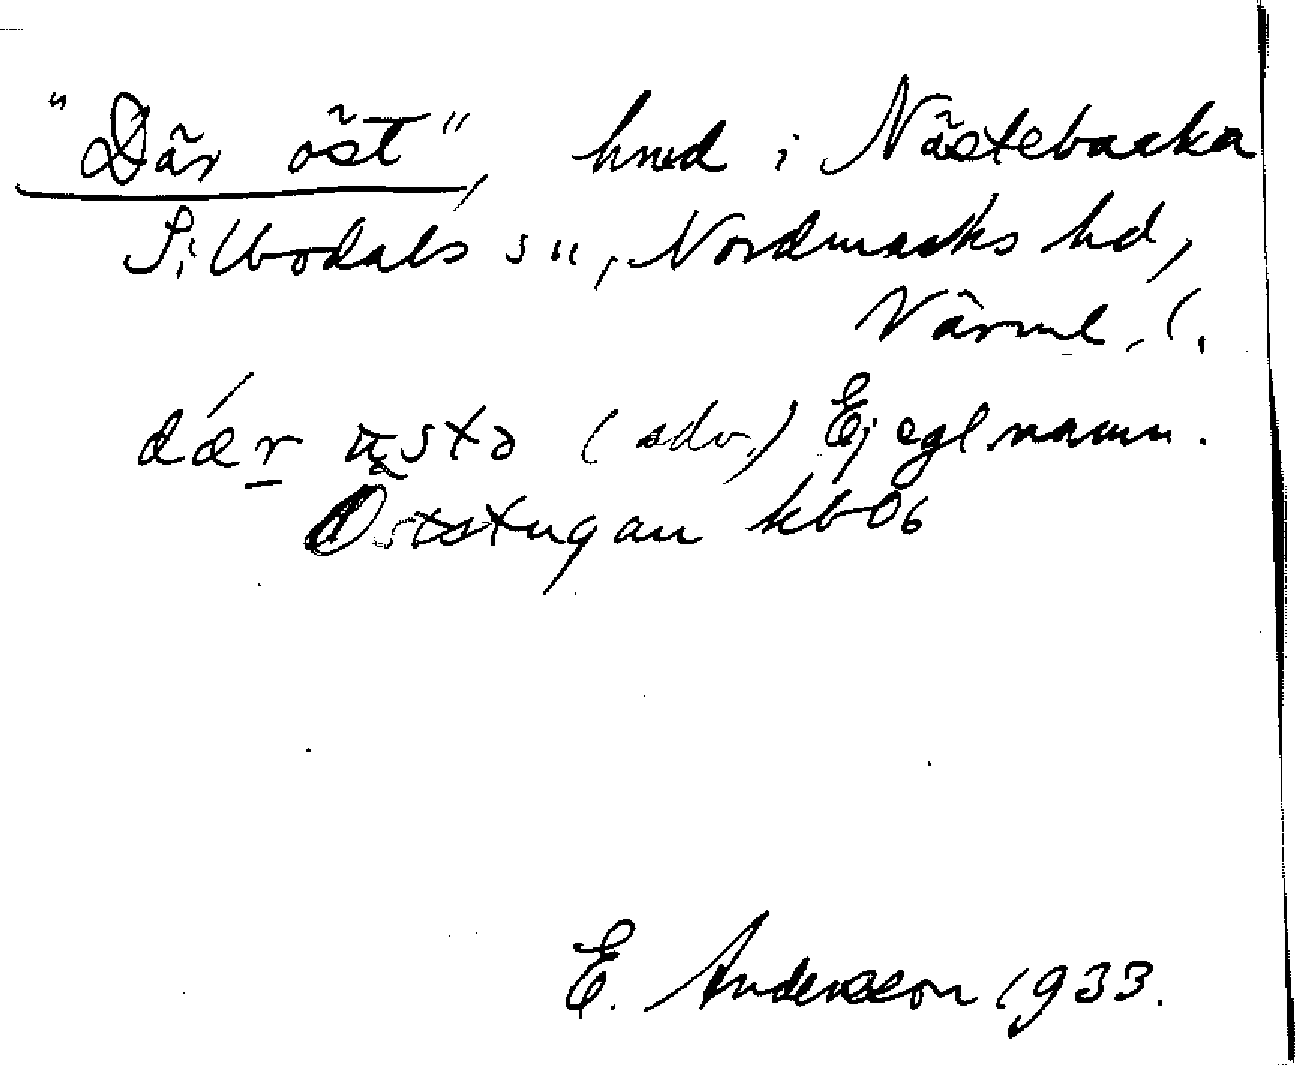 "Där öst", hmd i Nästebacka
Silbodals sn, Nordmarks hd,
Värml. l.
dǽr ustə (adv.) Ej egl namn.
Öststugan kb06
E. Andersson 1933.